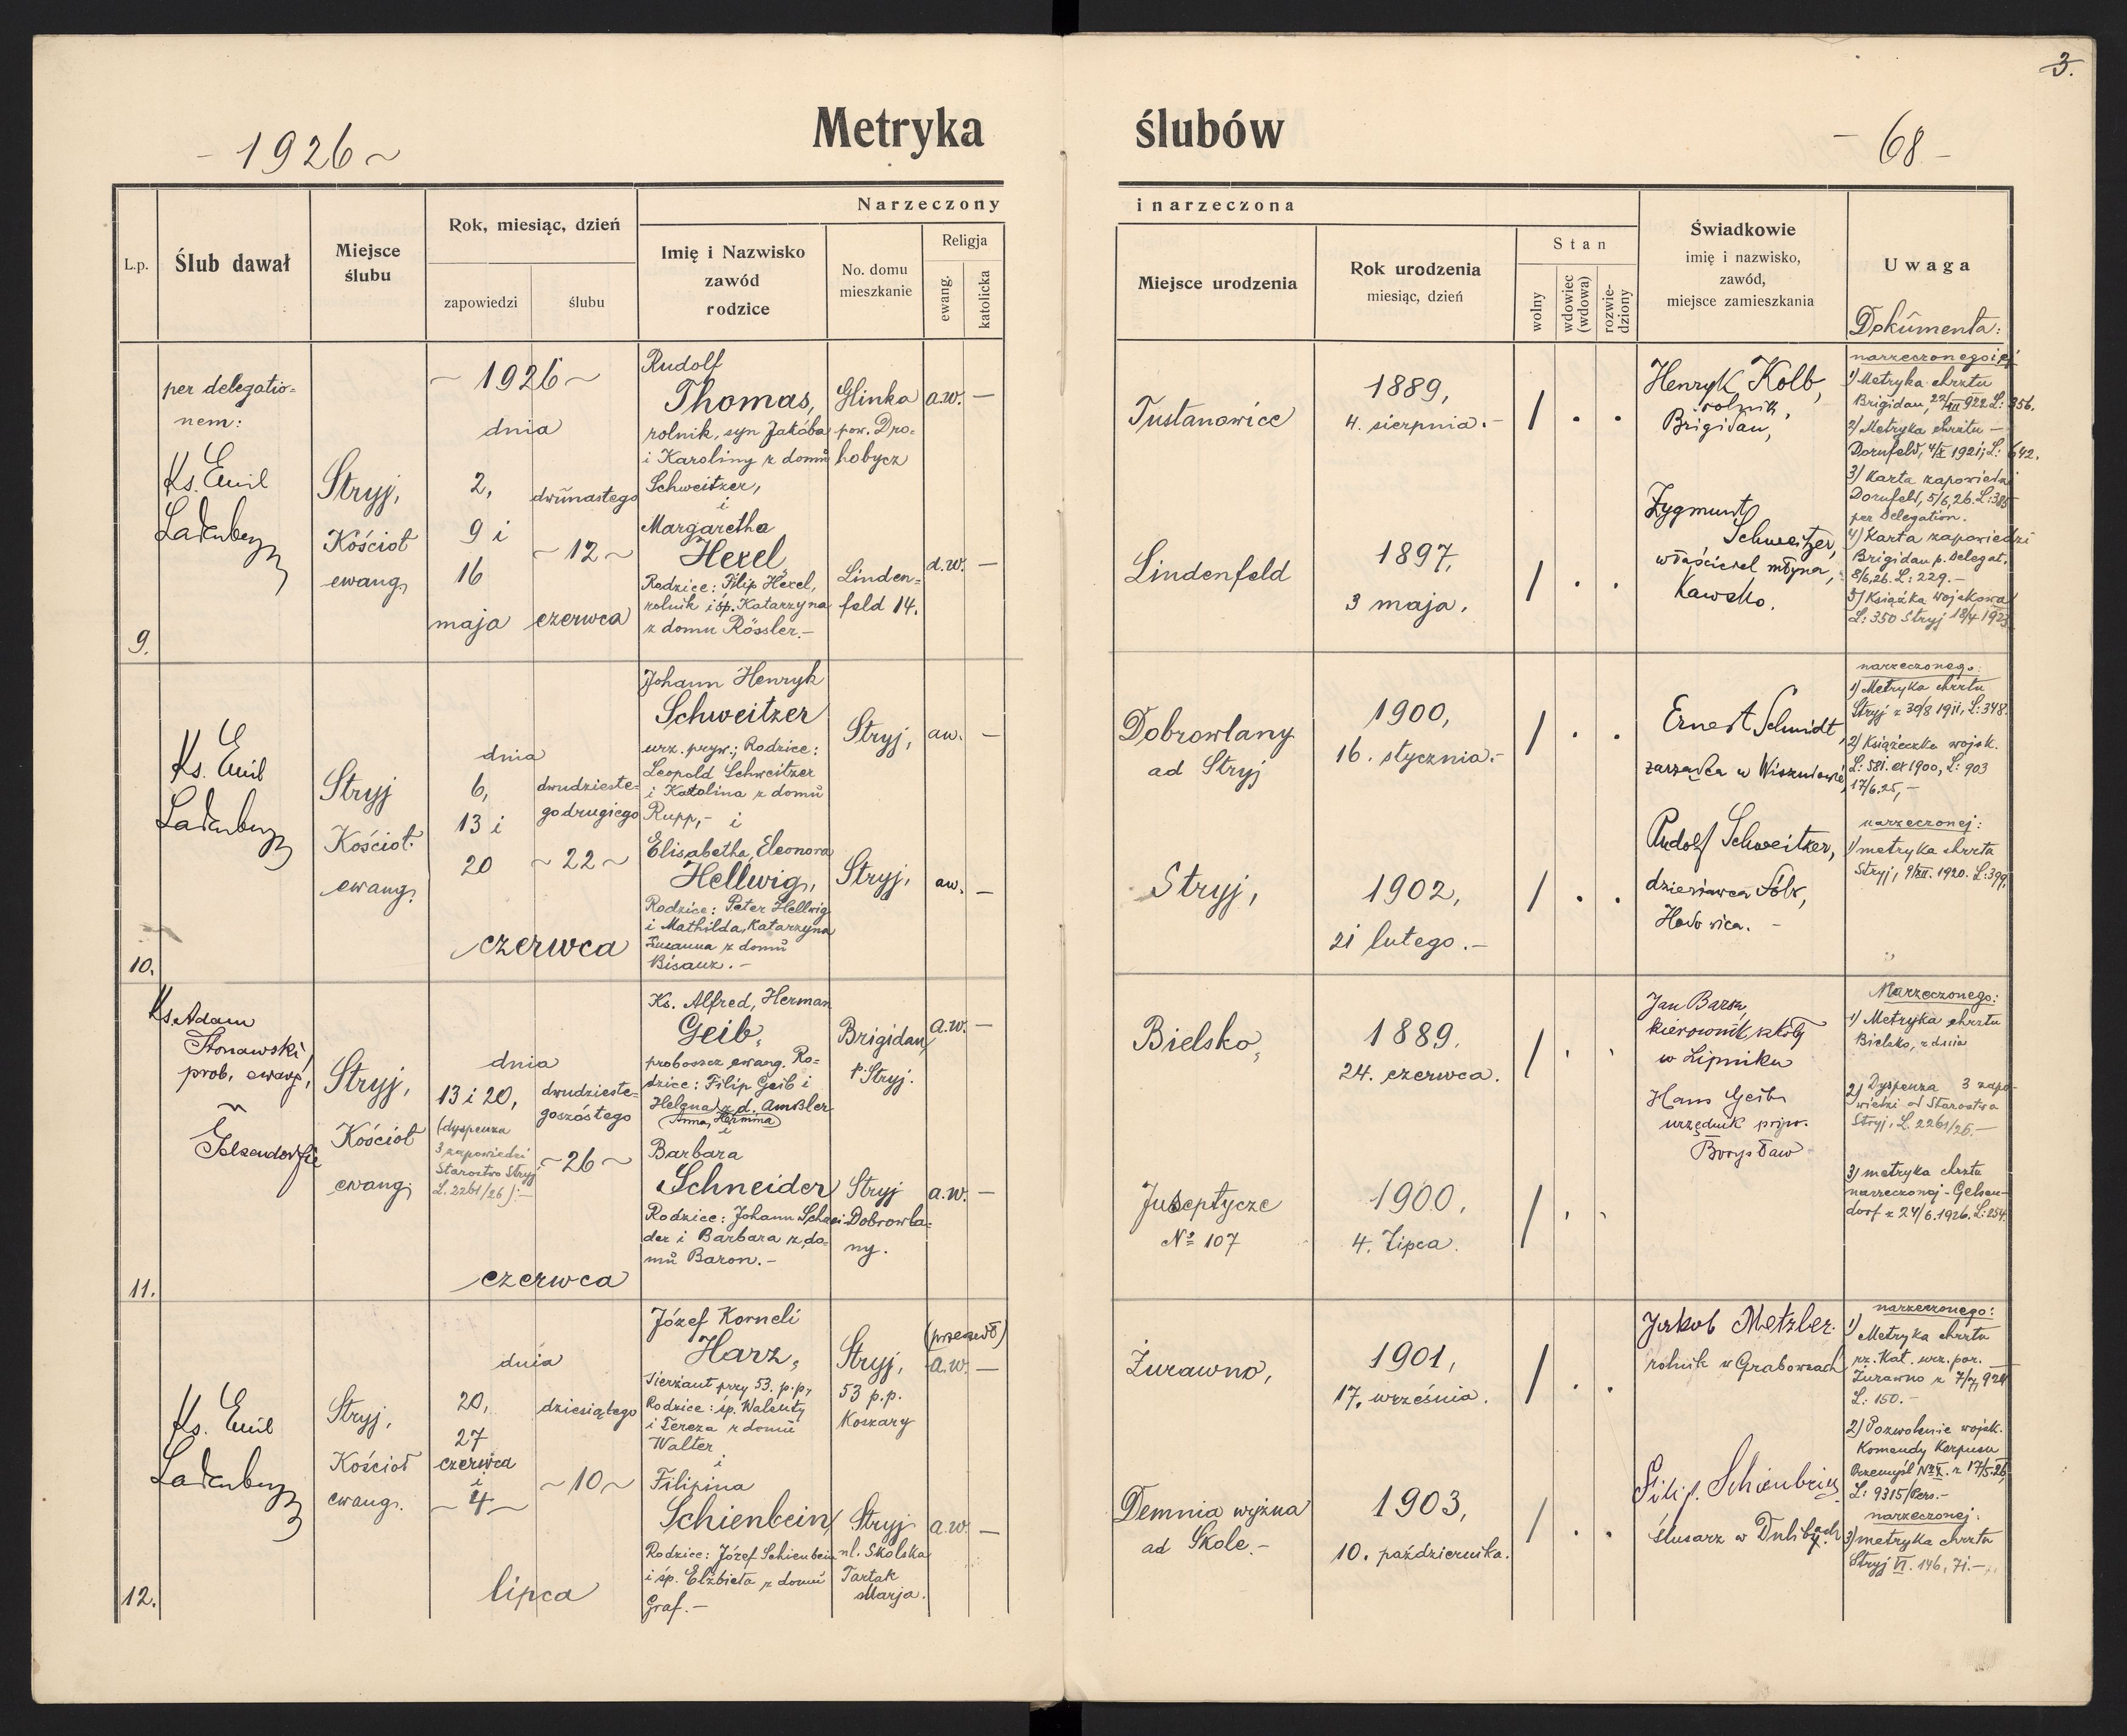 3.
Metryka ślubów
- 1926 ~
- 68 -
L.p.
Ślub dawał
Miejsce
ślubu
Rok, miesiąc, dzień
zapowiedzi
ślubu
Narzeczony
Imię i Nazwisko
zawód
rodzice
No. domu
mieszkanie
Religja
ewang.
katolicka
i narzeczona
Miejsce urodzenia
Rok urodzenia
miesiąc, dzień
Stan
wolny
wdowiec
(wdowa)
rozwie-
dziony
Świadkowie
imię i nazwisko,
zawód,
miejsce zamieszkania
Uwaga
Dokumenta:
9.
per delegatio=
nem:
Ks. Emil
Ladenberger
Stryj,
Kościoł
ewang.
~ 1926 ~
dnia
2,
9 i
16
maja
dwunastego
~ 12 ~
czerwca
Rudolf
Thomas,
rolnik, syn Jakóba
i Karoliny z domu
Schweitzer,
i
Margaretha
Hexel,
Rodzice: Filip Hexel,
rolnik i śp. Katarzyna
z domu Rössler.-
Glinka
pow. Dro=
hobycz
Linden=
feld 14.
a.w. -
a.w. -
Tustanowice
Lindenfeld
1889,
4. sierpnia.-
1897,
3 maja.
/ . .
/ . .
Henryk Kolb,
rolnik,
Brigidau,
Zygmunt
Schweitzer,
właściciel młyna,
Kawsko.
narzeczonego i ej
1) Metryka chrztu
Brigidau, 22/III 922 L: 356.
2) Metryka chrztu -
Dornfeld, 4/X 1921, L: 642.
3) Karta zapowiedzi
Dornfeld, 5/6,26. L: 385
per Delegation.
4) Karta zapowiedzi
Brigidau p. Delegat.
8/6,26. L: 229.-
5) Książka wojskowa
L: 350 Stryj 18/4 1923
10.
Ks. Emil
Ladenberger
Stryj
Kościoł.
ewang.
dnia
6,
13 i
20
dwudzieste=
go drugiego
~ 22 ~
czerwca
Johann Henryk
Schweitzer
urz. pryw.; Rodzice:
Leopold Schweitzer
i Karolina z domu
Rupp,- i
Elisabetha, Eleonora
Hellwig,
Rodzice: Peter Hellwig
i Mathilda, Katarzyna
Zuzanna z domu
Bisanz.-
Stryj,
Stryj,
aw. -
aw. -
Dobrowlany
ad Stryj
Stryj,
1900,
16. stycznia.-
1902,
21 lutego.-
/ . .
/ . .
Ernest Schmidt,
zarządca w
Rudolf Schweitzer,
dzierżawca
narzeczonego:
1) Metryka chrztu
Stryj z 30/8 1911, L: 348.
2) Książeczka wojsk.
L: 581. ex 1900, L: 903
17/6.25,-
narzeczonej:
1) metryka chrztu
Stryj, 9/XII. 1920. L: 399,
11.
Ks. Adam
Stonawski
prob. ewang.
w
Gelsendorfie
Stryj,
Kościoł
ewang.
dnia
13 i 20,
(dyspenza
3 zapowiedzi
Starostwo Stryj
L. 2261/26).-
dwudzieste=
goszóstego
~ 26 ~
czerwca
Ks. Alfred, Herman
Geib,
proboszcz ewang. Ro=
dzice: Filip Geib i
Helena z d. Amßler
(Anna, Hermina)
i
Barbara
Schneider
Rodzice: Johann Schnei=
der i Barbara z do=
mu Baron.-
Brigidau
p. Stryj.
Stryj
Dobrowla=
ny.
a.w. -
a.w. -
Bielsko,
Juseptycze
No 107
1889.
24. czerwca.
1900,
4. lipca.
/ . .
/ . .
Jan
kierownik szkoły
w Lipniku
Hans Geib
urzędnik pryw.
Borysław
Narzeczonego:
1) Metryka chrztu
Bielsko, z dnia
2) Dyspenza 3 zapo-
wiedzi od Starostwa
Stryj, L. 2261/26.-
3) metryka chrztu
narzeczonej - Gelsen-
dorf z 24/6.1926. L: 254.
12.
Ks. Emil
Ladenberger
Stryj,
Kościoł
ewang.
dnia
20,
27
czerwca
i
~ 4 ~
dziesiątego
~ 10 ~
lipca
Józef Korneli
Harz,
sierżant przy 53. p.p.,
Rodzice: śp. Walenty
i Tereza z domu
Walter
i
Filipina
Schienbein
Rodzice: Józef Schienbein
i śp. Elżbieta z domu
Graf.-
Stryj,
53 p.p.
Koszary
Stryj
ul. Skolska
Tartak
Marja.
(przeszedł)
a.w. -
a.w. -
Żurawno,
Demnia wyżna
ad Skole.-
1901,
17. września.
1903,
10. października.
/ . .
/ . .
Jakob Metzler
rolnik w
Filip. Schienbein
ślusarz w Dulibach.
narzeczonego:
1)
Metryka chrztu
rz. Kat. urz. par.
Żurawno
L: 150.-
2) Pozwolenie wojsk.
Komendy Korpusu
Przemyśl No X. z 17/5.26,
L: 9315/Pers.-
narzeczonej:
3) metryka chrztu
Stryj VI. 146, 71.-